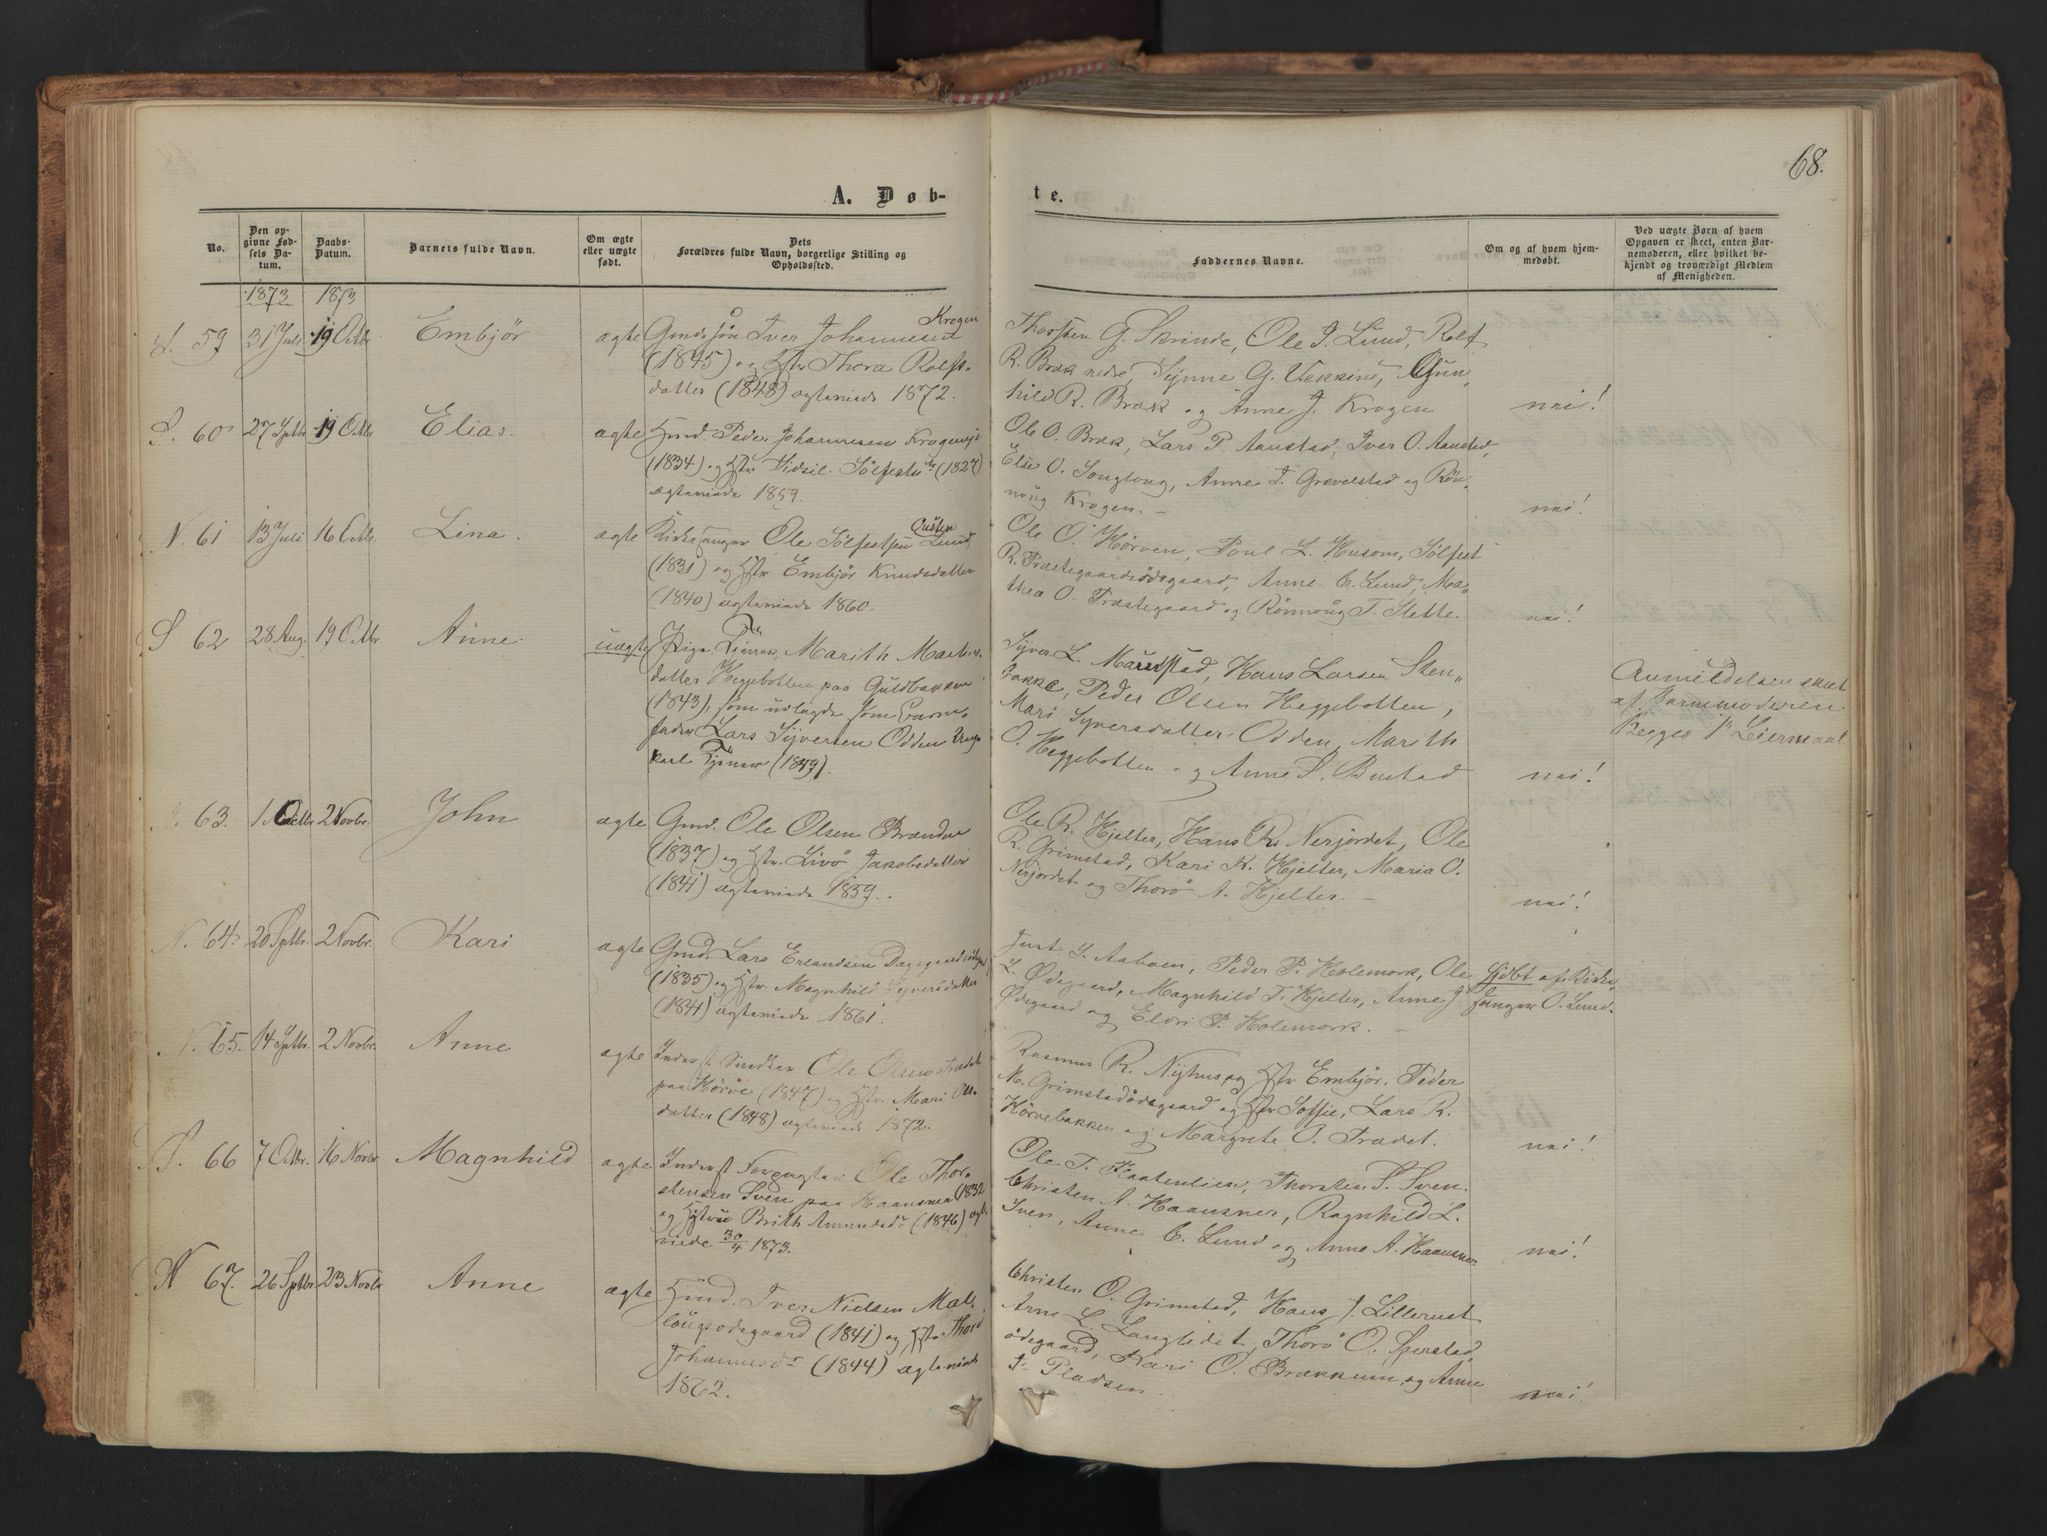 68.
A. Døb-
te.
No.
Den op-
givne Fød-
sels Da-
tum.
Daabs-
Datum.
Barnets fulde Navn.
Om ægte
eller uægte
født.
Dets
Forældres fulde Navn, borgerlige Stilling og
Opholdssted.
Faddernes Navne.
Om og af hvem hjem-
medøbt.
Ved uægte Børn af hvem
Opgaven er skeet, enten Bar-
nemoderen, eller hvilket be-
kjendt og troværdigt Medlem
af Menigheden.
1873 1873
S. 59 31 Juli 19 Octbr Embjör ægte Gmdssön Iver Johannesen Krogen
(1845) og Hstr Thora Rolfs-
datter (1848) ægteviede 1872.
Thorsten G. Skrinde, Ole J. Lund, Rolf
R. Bræk nedre, Synne G. Uekkins, Gun-
hild R. Bræk og Anne J. Krogen
nei!
S. 60 27 Sptbr 19 Octbr Elias. ægte Hmd. Peder Johannesen
(1834) og Hstr Sölfestdr (1827)
ægteviede 1859.
Ole O. Bræk, Lars P. Aanstad, Iver O. Aanstad,
Else O. Songlong, Anne J. Grevelstad og Rön-
noug Krogen. -
nei!
N. 61 13 Juli 16 Octbr. Lina. ægte Kirkesanger Ole Sölfestsen Lund
(1831) og Hstr Embjör Knudsdatter
(1840) ægteviede 1860.
Ole O. Hörven, Poul L. Husom, Sölfest
R. Præstegaardsödegaard, Anne C. Lund, Ma-
thea O. Præstegaard og Rönnoug T. Slette.
nei!
S 62 28 Aug. 19 Octbr Anne. uægte Pige Tjener Marith
datter Heggebotten paa Guldbakken
(1843), som udlagde som Barne-
fader Lars Syversen Odden Ung-
karl Tjener (1849).
Syver L. Maurstad, Hans Larsen Sten-
bakke, Peder Olsen Heggebotten,
Mari Syversdatter Odden, Marith
O. Heggebotten og Anne S. Bustad
nei!
Anmeldelsen skeet
af Barnemoderen
Begges 1ste Leiermaal
N. 63. 1 Octbr 2 Novbr. John ægte Gmd. Ole Olsen Brænden
(1837) og Hstr. Livö Jakobsdatter
(1841) ægteviede 1859.
Ole R. Hjelter, Hans R. Nerjordet, Ole
R. Grimstad, Kari K. Hjelter, Maria O.
Nerjordet og Thorö A. Hjelter. -
nei!
N. 64. 20 Sptbr. 2 Novbr. Kari ægte Gmd. Lars Erlandsen
(1835) og Hstr. Magnhild Syversdatter
(1841) ægteviede 1861.
Just S. Aaboen, Peder P. Holemork, Ole
L. Ødegaard, Magnhild T. Hjelter, Anne J.
Ødegaard og Eldri P. Holemork. -
hjdbt af Kirke-
sanger O. Lund.
N. 65. 14 Sptbr. 2 Novbr. Anne ægte Inderst Snedker Ole Olsen Trædet
paa Hörve (1847) og Hstr. Mari Ols-
datter (1848) ægteviede 1872.
Rasmus R. Nyhus og Hstr Embjör. Peder
M. Grimstadödegaard og Hstr Soffie, Lars R.
Hörvebakken og Margrete O. Trædet.
nei!
S. 66 7 Octbr. 16 Novbr. Magnhild ægte Inderst Forpagter Ole Thor-
stensen Sven paa Haansnar (1832
og Hustrue Brith Amundsdr (1846) ægte-
viede 30/4 1873.
Ole T. Kaatenlien, Thorsten S. Sven.
Christen A. Haansner, Ragnhild L.
Sven, Anne C. Lund og Anne A. Haansner
nei!
N 67. 26 Sptbr 23 Novbr Anne ægte Hmd. Iver Nielsen
(1841) og Hstr Thorö
Johannesdr (1844) ægteviede
1862.
Christen O. Grimstad, Hans J. Lillerust
Arne L. Langledet, Thorö O. Sperstad,
ödegaard, Kari O. Brækkum og Anne
I. Pladsen
nei!